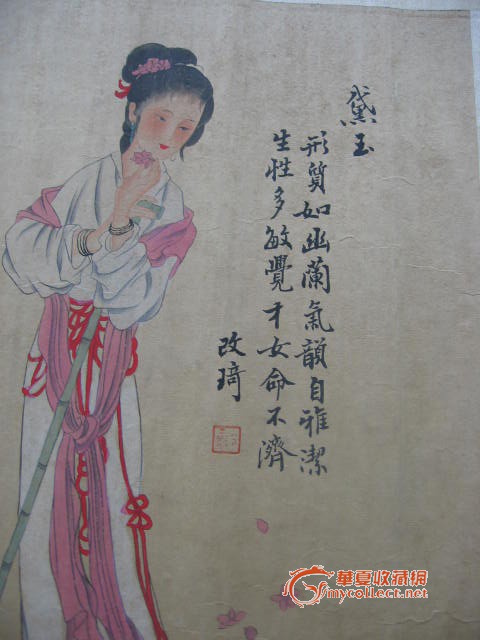 黛玉
形質如幽蘭氣韻自雅潔
生性多敏覺才女命不濟
改琦
華夏收藏網
mycollect.net